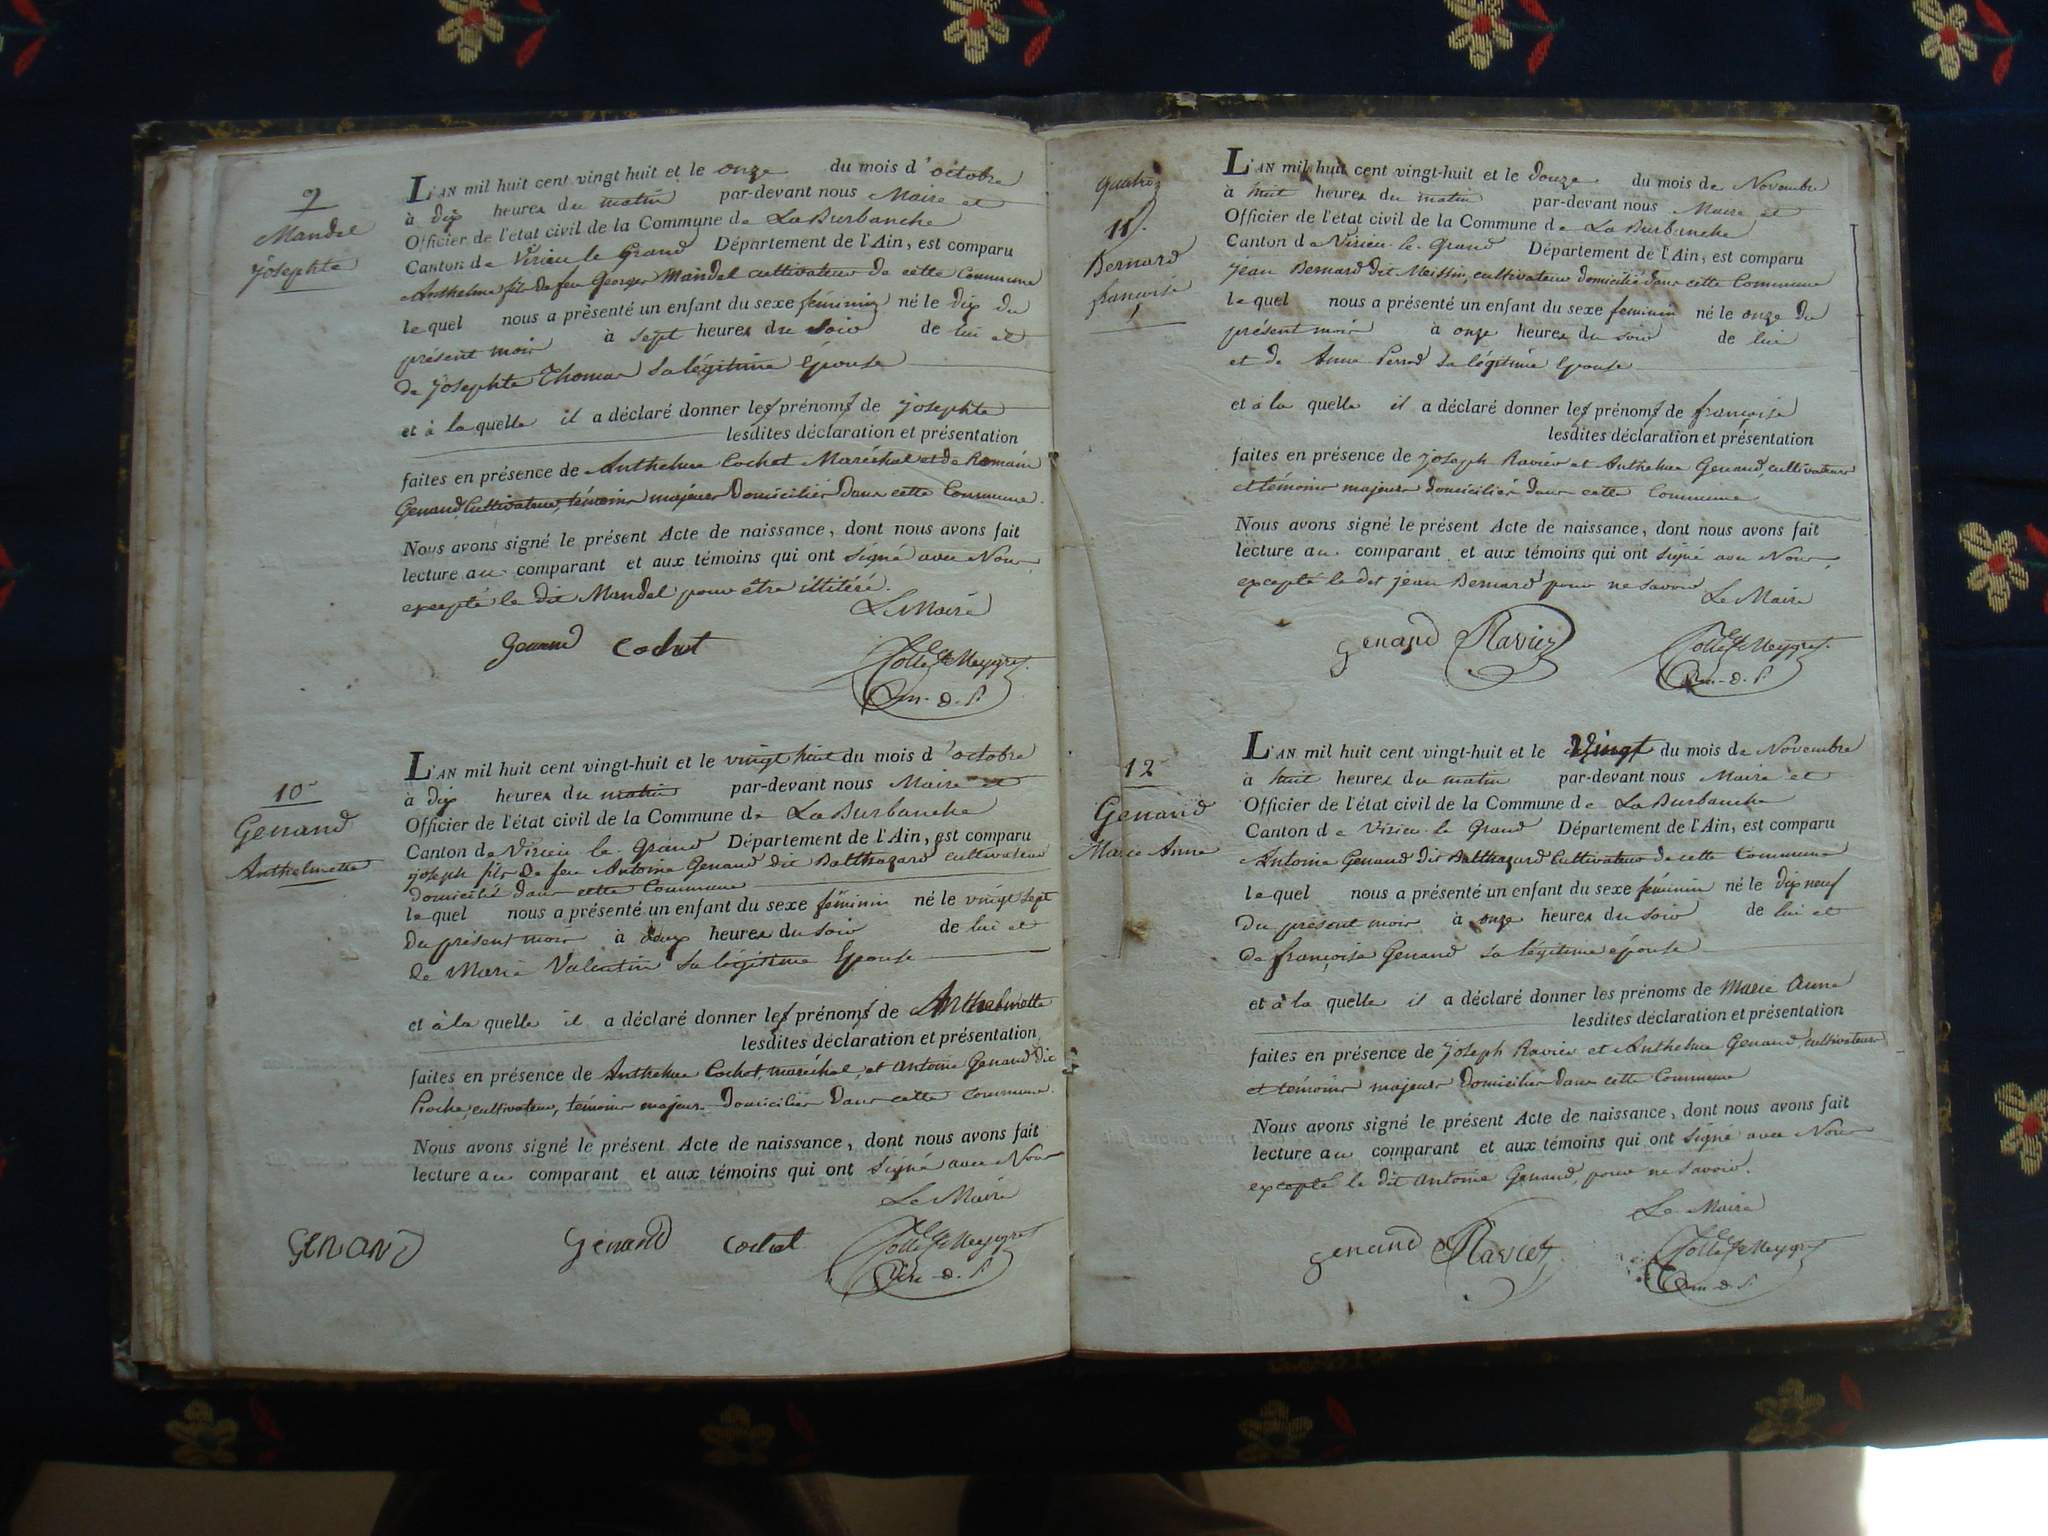 9
Mandel
Josephte
L'AN mil huit cent vingt huit et le onze du mois d'octobre
à dix heures du matin par-devant nous Maire et
Officier de l'état civil de la Commune de La Burbanche
Canton de Virieu le Grand Département de l'Ain, est comparu
Anthelme fils de feu George Mandel cultivateur de cette Commune
le quel nous a présenté un enfant du sexe féminin né le dix du
présent mois à sept heures du soir de lui et
de Josephte Thomas sa légitime épouse
et à la quelle il a déclaré donner les prénoms de Josephte
lesdites déclaration et présentation
faites en présence de Anthelme Cochet Maréchal et de Romain
Genand, Cultivateur, témoins majeurs domiciliés dans cette Commune.
Nous avons signé le présent Acte de naissance, dont nous avons fait
lecture au comparant et aux témoins qui ont signé avec Nous,
excepté le dit Mandel pour être illitéré.
Le Maire
Genand Cochet
10
Genand
Anthelmette
L'AN mil huit cent vingt-huit et le vingt huit du mois d'octobre
à dix heures du matin par-devant nous Maire et
Officier de l'état civil de la Commune de La Burbanche
Canton de Virieu le Grand Département de l'Ain, est comparu
joseph fils de feu Antoine Genand dit Balthazard cultivateur
domicilié dans cette Commune
le quel nous a présenté un enfant du sexe féminin né le vingt sept
du présent mois à deux heures du soir de lui et
de Marie Valentin sa légitime Epouse
et à la quelle il a déclaré donner les prénoms de Anthelmette
lesdites déclaration et présentation
faites en présence de Anthelme Cochet, maréchal, et antoine Genand dit
Pioche, cultivateur, témoins majeurs domiciliés dans cette Commune.
Nous avons signé le présent Acte de naissance, dont nous avons fait
lecture au comparant et aux témoins qui ont signé avec Nous
Le Maire
GENAND Genand cochet
11.
Bernard
françoise
L'AN mil huit cent vingt-huit et le douze du mois de Novembre
à huit heures du matin par-devant nous Maire et
Officier de l'état civil de la Commune de La Burbanche
Canton de Virieu-le-Grand Département de l'Ain, est comparu
jean Bernard dit cultivateur domicilié dans cette Commune
le quel nous a présenté un enfant du sexe feminin né le onze du
présent mois à onze heures du soir de lui
et de Anne Perrod sa légitime Epouse
et à la quelle il a déclaré donner les prénoms de françoise
lesdites déclaration et présentation
faites en présence de Joseph Ravier et Anthelme Genand, cultivateurs
et témoins majeurs domiciliés dans cette Commune
Nous avons signé le présent Acte de naissance, dont nous avons fait
lecture au comparant et aux témoins qui ont signé avec Nous,
excepté le dit jean Bernard pour ne savoir
Le Maire
genand Ravier
12
Genand
Marie Anne
L'AN mil huit cent vingt-huit et le Vingt du mois de Novembre
à huit heures du matin par-devant nous Maire et
Officier de l'état civil de la Commune de La Burbanche
Canton de Virieu-le Grand Département de l'Ain, est comparu
Antoine Genand dit Balthazard Cultivateur de cette Commune
le quel nous a présenté un enfant du sexe féminin né le dix neuf
du présent mois à onze heures du soir de lui et
de françoise Genand sa légitime épouse
et à la quelle il a déclaré donner les prénoms de Marie Anne
lesdites déclaration et présentation
faites en présence de Joseph Ravier et Anthelme Genand, cultivateurs
et témoins majeurs domiciliés dans cette Commune
Nous avons signé le présent Acte de naissance, dont nous avons fait
lecture au comparant et aux témoins qui ont signé avec Nous
excepté le dit antoine Genand, pour ne savoir.
Le Maire
genand Ravier